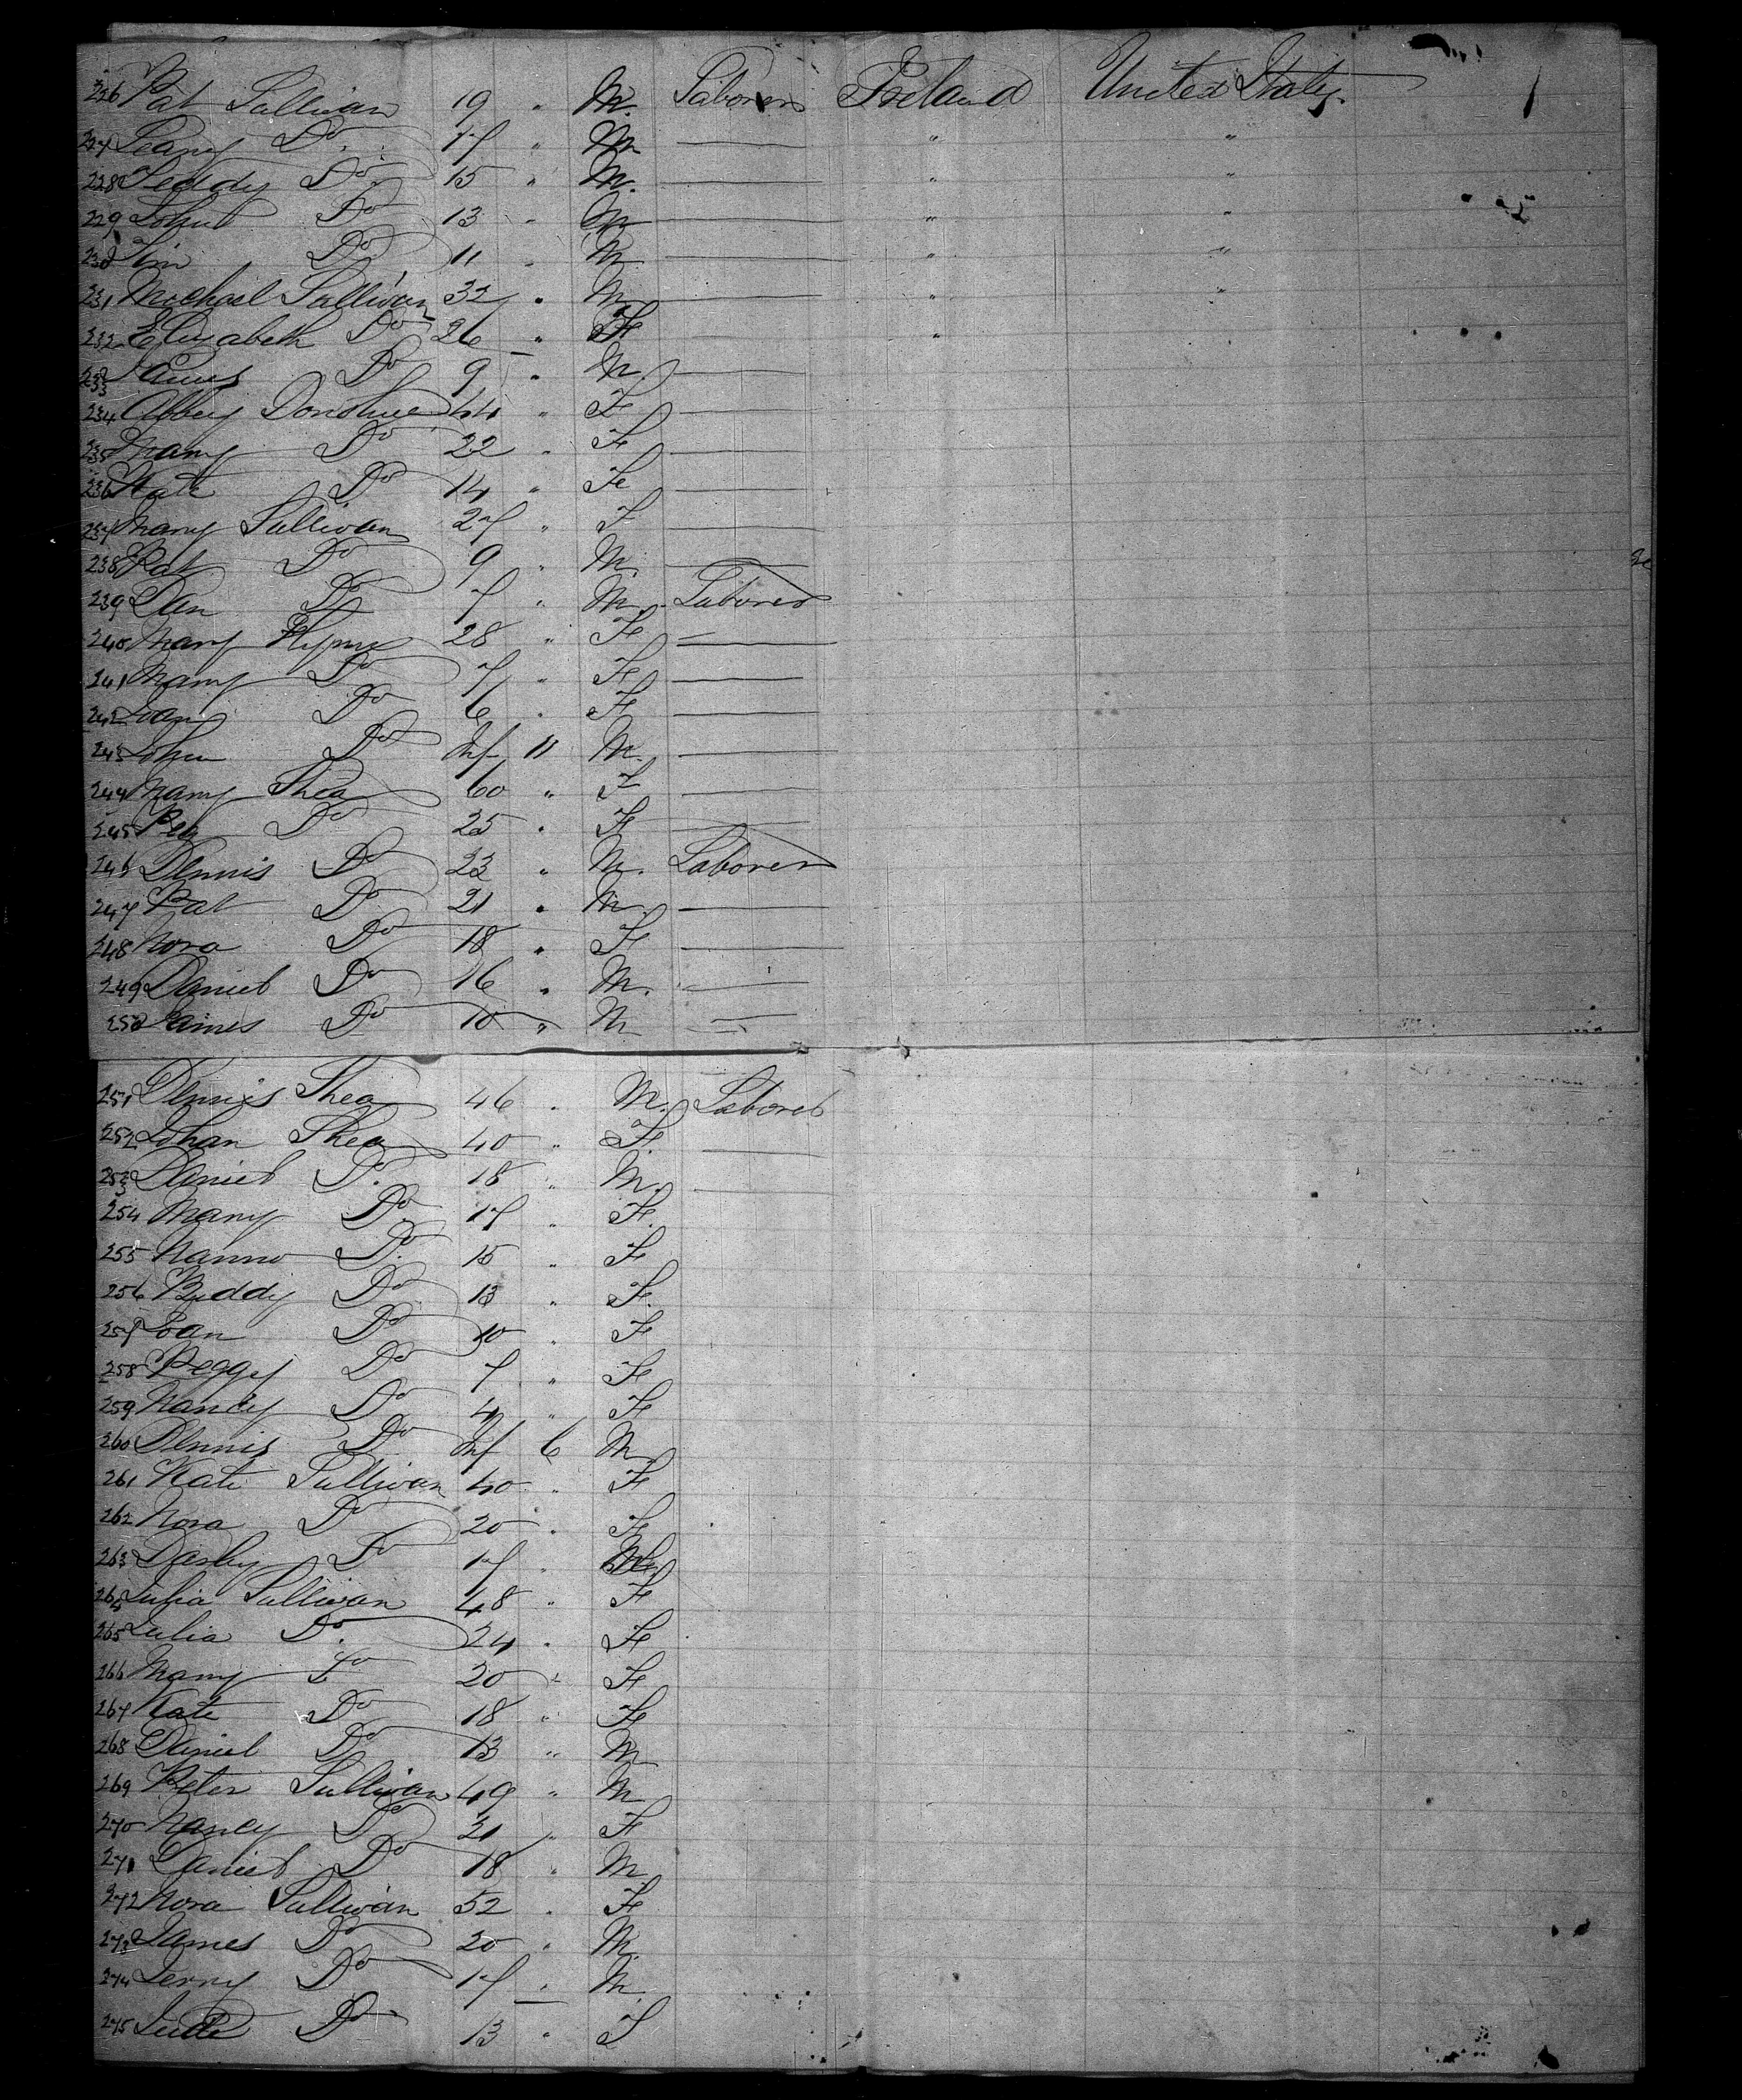 226 Pat Sullivan 19 " M. Laborer Ireland United States
227 Do 17 " M " "
228 Teddy Do 15 " M. " "
229 John Do 13 " M " "
230 Tim Do 11 " M " "
231 Michael Sullivan 32 " M " "
232 Elizabeth Do 26 " F "
233 James Do 9 " M
234 Abbey Donohue 44 " F
235 Mary Do 22 " F
236 Kate Do 14 " Fe
237 Mary Sullivan 27 " F
238 Pat Do 9 " M
239 Dan Do 7 " M Laborer
240 Mary 28 " F
241 Mary Do 7 " F
242 Joan Do 6 " F
243 John Do Inf 11 M.
244 Mary Shea 60 " F
245 Peg Do 25 " F
246 Dennis Do 23 " M. Laborer
247 Pat Do 21 " M
248 Nora Do 18 " F
249 Daniel Do 16 " M.
250 James Do 10 " M
251 Dennis Shea 46 " M. Laborer
252 Johan Shea 40 " F
253 Daniel Do. 18 " M.
254 Mary Do 17 " F.
255 Nanno Do. 15 " F
256 Biddy Do 13 " F.
257 Joan Do 10 " F
258 Peggy Do 7 " F
259 Nancy Do 4 " F
260 Dennis Do Inf 6 M
261 Kate Sullivan 40 " F
262 Nora Do 20 " F
263 Darby Do 17 " M
264 Julia Sullivan 48 " F
265 Julia Do. 24 " F
266 Mary Do 20 " F
267 Kate Do 18 " F
268 Daniel Do 13 " M
269 Peter Sullivan 49 " M
270 Nancy Do 21 " F
271 Daniel Do 18 " M
272 Nora Sullivan 52 " F
273 James Do 20 " M.
274 Jerry Do 17 " M.
275 Do 13 " F